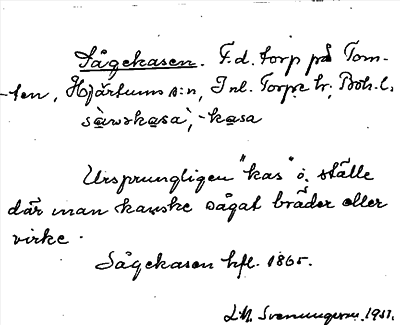 Sågekasen. F.d. torp på Tom-
-ten, Hjärtums s:n, Inl. Torpe hr, Boh. l.
sàwskasa`, -kasa
Ursprungligen "kas" ö. ställe
där man kanske sågat bräder eller
virke.
Sågekasen hfl. 1865.
L.M. Svenungsson. 1951.